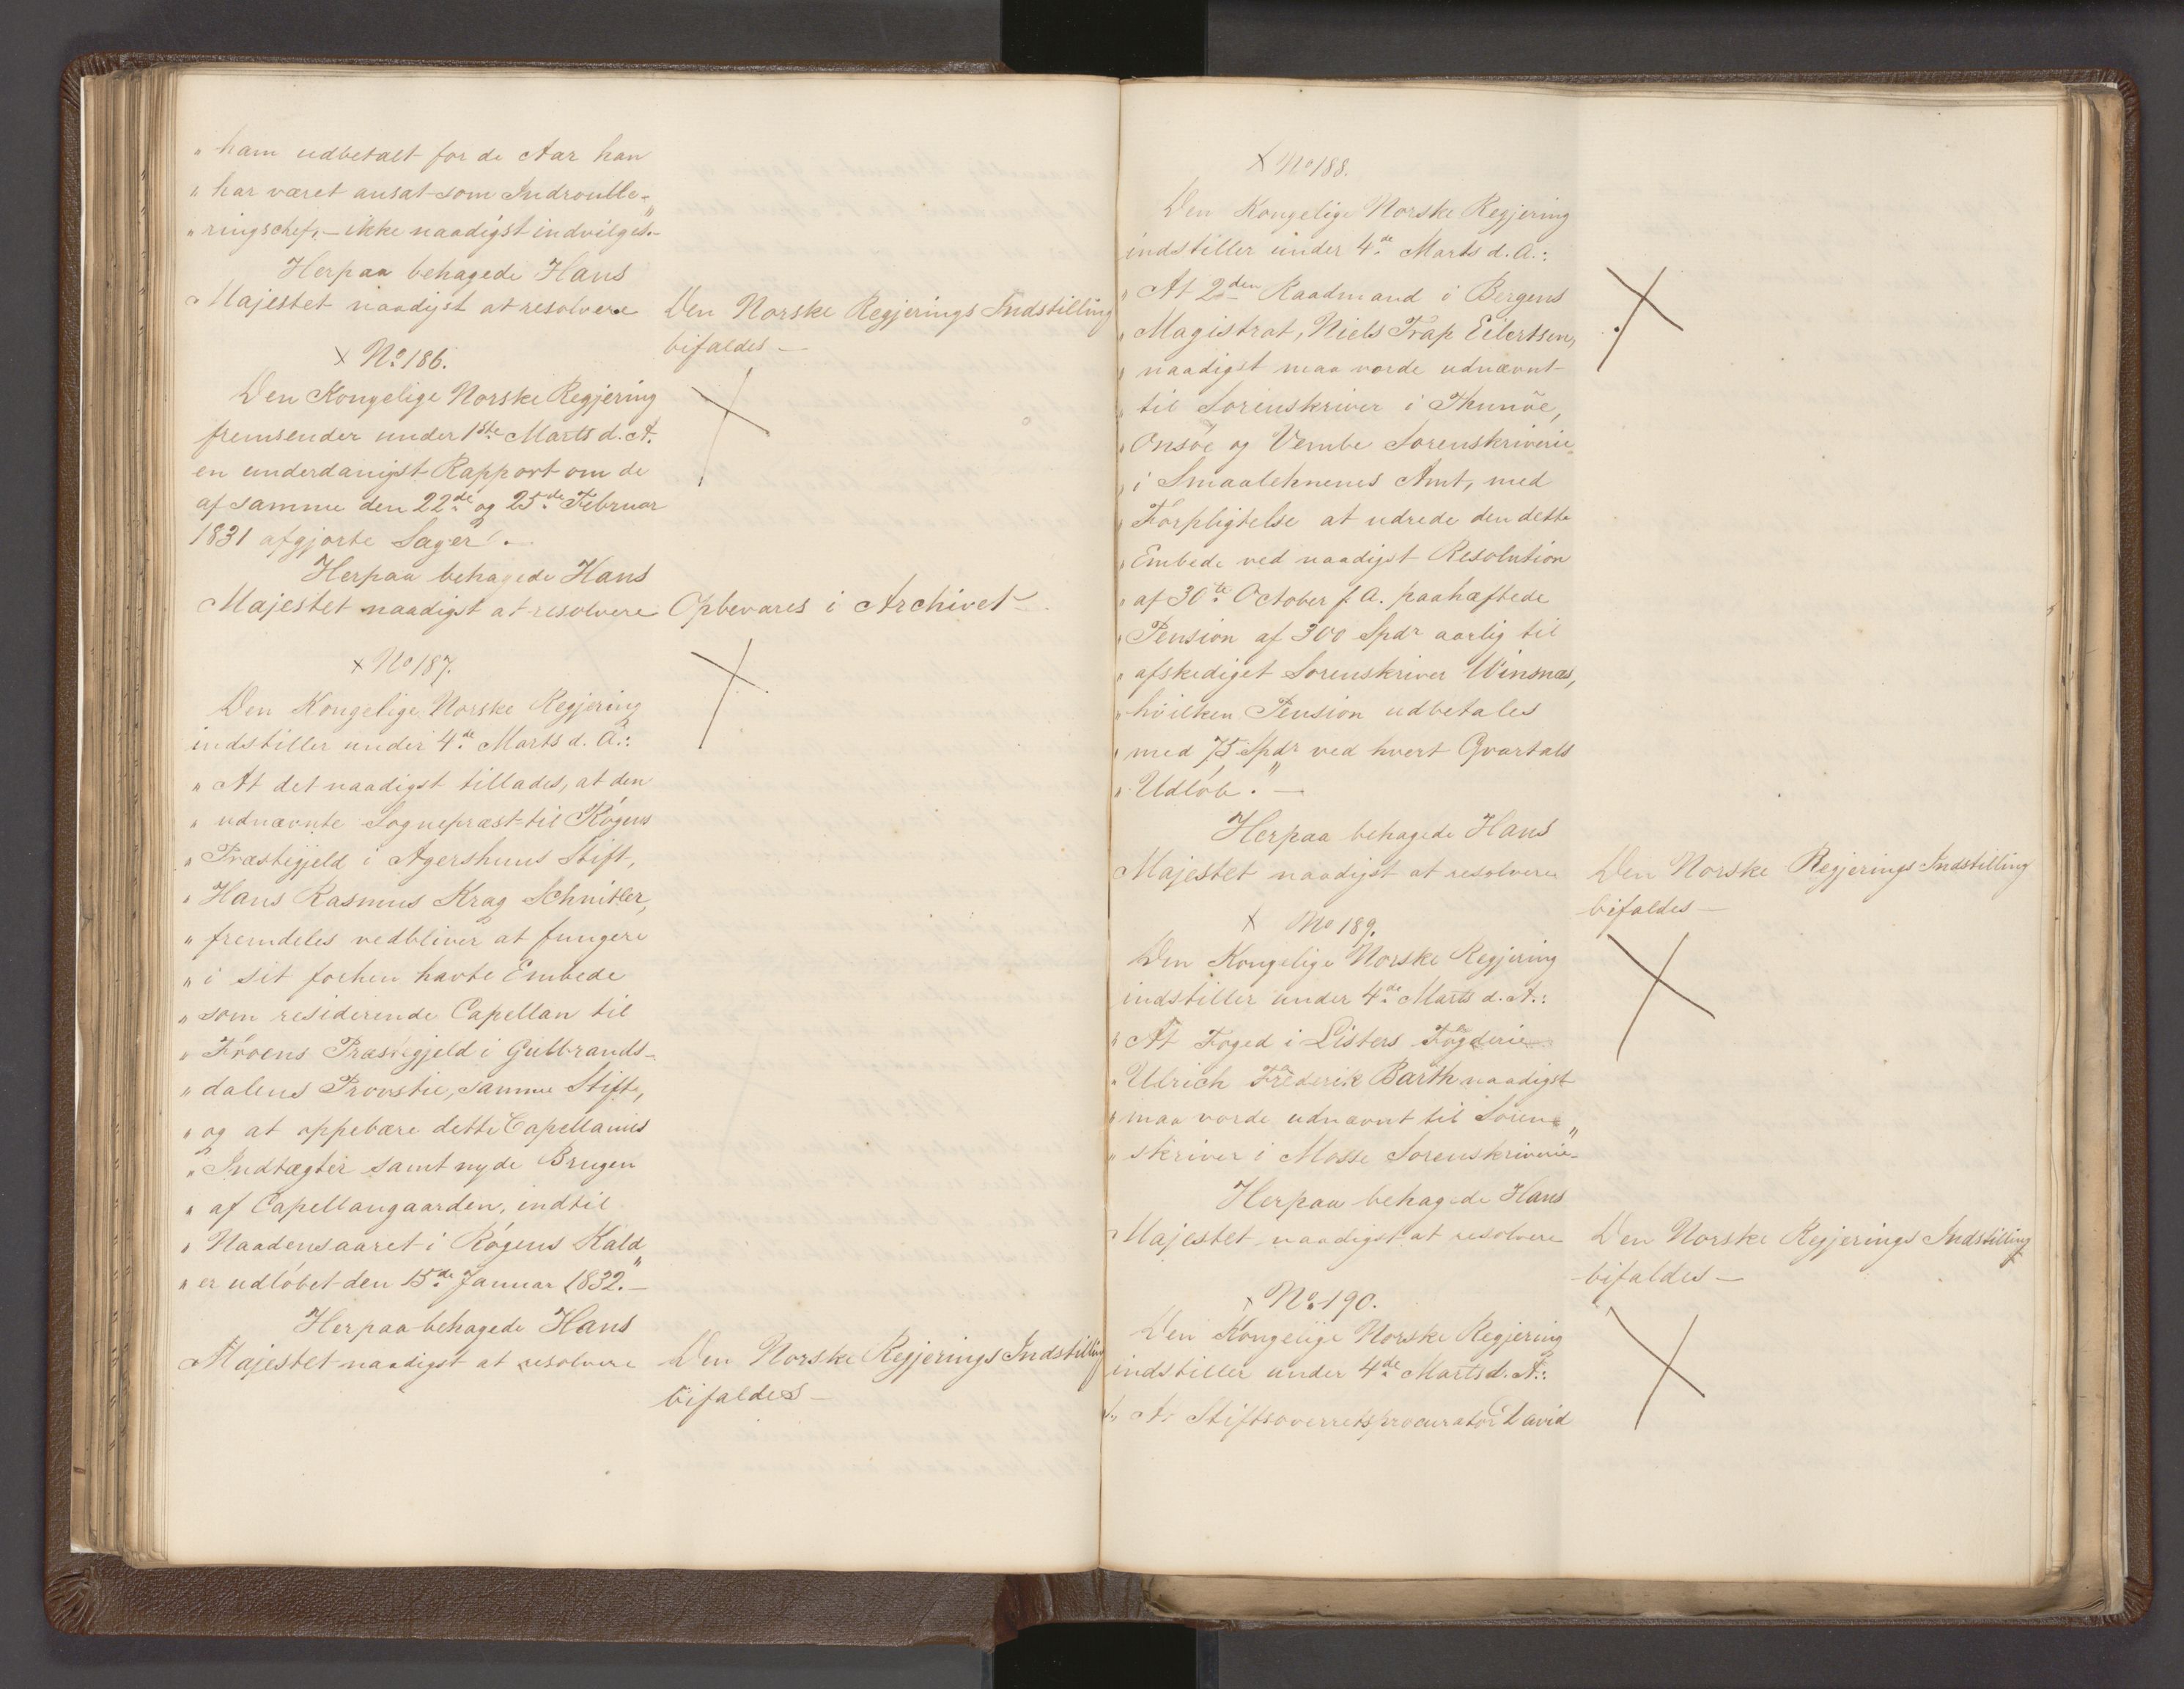 „ ham udbetalt for de Aar han
„ har været ansat som Indroulle-
„ ringschef, – ikke naadigst indvilges."–
Herpaa behagede Hans
Majestet naadigst at resolvere
Den Norske Regjerings Indstilling
bifaldes –
x No 186.
Den Kongelige Norske Regjering
fremsender under 1ste Marts d. A.
en underdanigst Rapport om de
af samme den 22de og 25de Februar
1831 afgjorte Sager. –
Herpaa behagede Hans
Majestet naadigst at resolvere
Opbevares i Archivet –
x No 187.
Den Kongelige Norske Regjering
indstiller under 4de Marts d. A.:
„ At det naadigst tillades, at den
„ udnævnte Sognepræst til Røgens
„ Præstegjeld i Agershuus Stift,
„ Hans Rasmus Krag Schnitler,
„ fremdeles vedbliver at fungere
„ i sit forhen havte Embede
„ som residerende Capellan til
„ Froens Præstegjeld i Gulbrands-
„ dalens Provstie, samme Stift,
„ og at oppebære dette Capellanies
„ Indtægter samt nyde Brugen
„ af Capellangaarden, indtil
„ Naadensaaret i Røgens Kald
„ er udløbet den 15de Januar 1832." –
Herpaa behagede Hans
Majestet naadigst at resolvere
Den Norske Regjerings Indstilling
bifaldes –
x No 188.
Den Kongelige Norske Regjering
indstiller under 4de Marts d. A.:
„ At 2den Raadmand i Bergens
„ Magistrat, Niels Trap Eilertsen,
„ naadigst maa vorde udnævnt
„ til Sorenskriver i Thunöe,
„ Onsöe og Vembe Sorenskriverie
„ i Smaalehnenes Amt, med
„ Forpligtelse at udrede den dette
„ Embede ved naadigst Resolution
„ af 30te October f. A. paahæftede
„ Pension af 300 Spdr aarlig til
„ afskediget Sorenskriver Winsnæs,
„ hvilken Pension udbetales
„ med 75 Spdr ved hvert Qvartals
„ Udløb." –
Herpaa behagede Hans
Majestet naadigst at resolvere
Den Norske Regjerings Indstilling
bifaldes –
x No 189.
Den Kongelige Norske Regjering
indstiller under 4de Marts d. A.:
„ At Foged i Listers Fogderie
„ Ulrich Frederik Barth naadigst
„ maa vorde udnævnt til Soren-
„ skriver i Mosse Sorenskriverie" –
Herpaa behagede Hans
Majestet naadigst at resolvere
Den Norske Regjerings Indstilling
bifaldes –
x No 190.
Den Kongelige Norske Regjering
indstiller under 4de Marts d. A.:
„ At Stiftsoverretsprocurator David